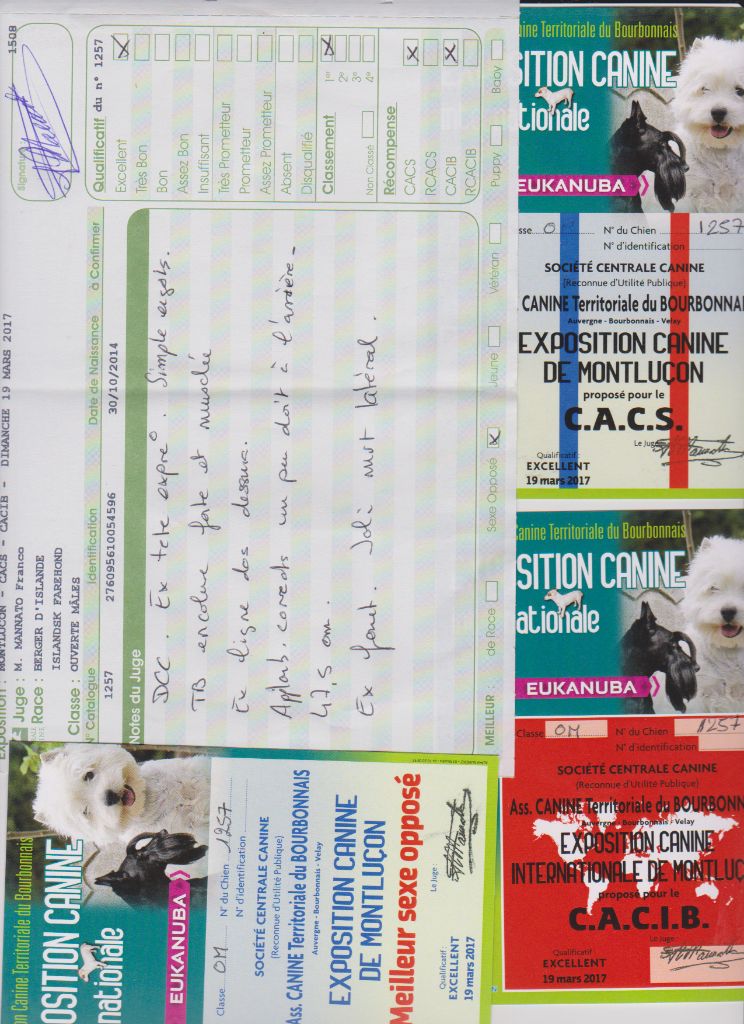 EXPOSITION : MONTLUCON - CACS - CACIB - DIMANCHE 19 MARS 2017
Juge : M. MANNATO Franco
Race : BERGER D'ISLANDE
ISLANDSK FAREHOND
Classe : OUVERTE MÂLES
N° Catalogue Identification Date de Naissance à Confirmer
1257 276095610054596 30/10/2014
Notes du Juge
DCC. Ex tête expre°. Simple ergots.
TB encolure forte et musclée
Ex ligne dos dessus.
Applomb. corrects un peu droit à l'arrière -
47,5 cm.
Ex fouet. Joli mvt latéral.
MEILLEUR : de Race Sexe Opposé X Jeune Vétéran Puppy Baby
Signature
1508
Qualificatif du n° 1257
Excellent X
Très Bon
Bon
Assez Bon
Insuffisant
Très Prometteur
Prometteur
Assez Prometteur
Absent
Disqualifié
Classement
1er X
2e
3e
4e
Non Classé
Récompense
CACS X
RCACS
CACIB X
RCACIB
ine Territoriale du Bourbonnais
SITION CANINE
tionale
EUKANUBA
sse OM N° du Chien 1257
N° d'identification
SOCIÉTÉ CENTRALE CANINE
(Reconnue d'Utilité Publique)
. CANINE Territoriale du BOURBONNAI
Auvergne - Bourbonnais - Velay
EXPOSITION CANINE
DE MONTLUÇON
proposé pour le
C.A.C.S.
Le Juge
Qualificatif :
EXCELLENT
19 mars 2017
Canine Territoriale du Bourbonnais
SITION CANINE
nationale
EUKANUBA
Classe OM N° du Chien 1257
N° d'identification
SOCIÉTÉ CENTRALE CANINE
(Reconnue d'Utilité Publique)
Ass. CANINE Territoriale du BOURBONN
Auvergne - Bourbonnais - Velay
EXPOSITION CANINE
INTERNATIONALE DE MONTLUÇ
proposé pour le
C.A.C.I.B.
Le Juge :
Qualificatif :
EXCELLENT
19 mars 2017
on Canine Territoriale du Bourbonnais
OSITION CANINE
nationale
EUKANUBA
Classe OM N° du Chien 1257
N° d'identification
SOCIÉTÉ CENTRALE CANINE
(Reconnue d'Utilité Publique)
Ass. CANINE Territoriale du BOURBONNAIS
Auvergne - Bourbonnais - Velay
EXPOSITION CANINE
DE MONTLUÇON
Meilleur sexe opposé
Le Juge :
Qualificatif :
EXCELLENT
19 mars 2017